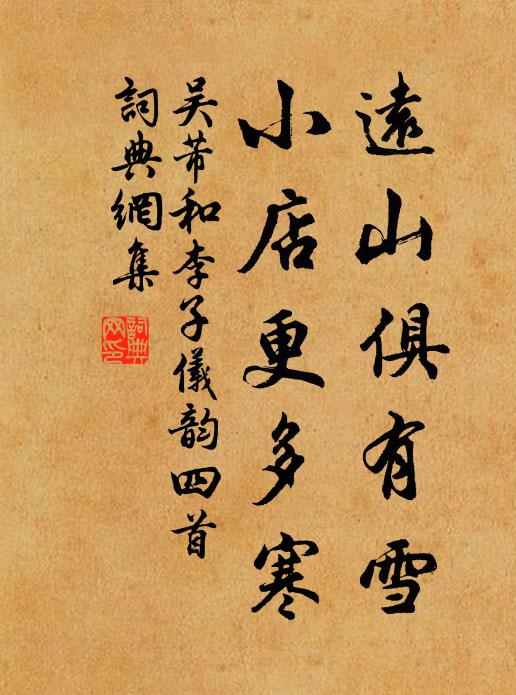 遠山俱有雪
小店更多寒
吴芾和李子儀韵四首
詞典網集
詞典
网印